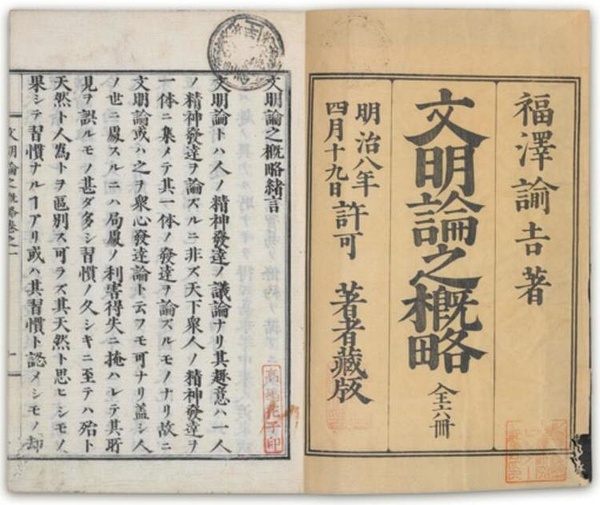 福澤諭吉著
文明論之概略 全六冊
明治八年
四月十九日 許可 著者藏版
文明論之概略緒言
文明論トハ人ノ精神發達ノ議論ナリ其趣意ハ一人
ノ精神發達ヲ論ズルニ非ズ天下衆人ノ精神發達ヲ
一体ニ集メテ其一体ノ發達ヲ論ズルモノナリ故ニ
文明論或ハ之ヲ衆心發達論ト云フモ可ナリ蓋シ人
ノ世ニ處スルニハ局處ノ利害得失ニ掩ハレテ其所
見ヲ誤ルモノ甚ダ多シ習慣ノ久シキニ至テハ殆ト
天然ト人為トヲ區別ス可ラズ其天然ト思ヒシモノ
果シテ習慣ナルヿアリ或ハ其習慣ト認メシモノ却
文明論之概略卷之一